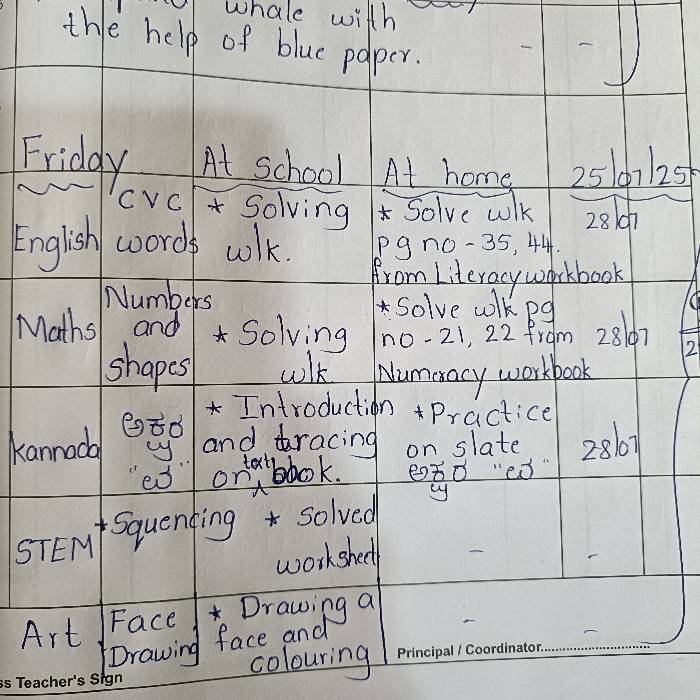 whale with
the help of blue paper.
- -
Friday At school At home 25/07/25
English CVC words * Solving wlk. * Solve wlk pg no - 35, 44. from Literacy workbook 28/07
Maths Numbers and shapes * Solving wlk * Solve wlk pg no - 21, 22 from Numeracy workbook 28/07
Kannada ಅಕ್ಷರ "ಅ" * Introduction and tracing on text book. * Practice on slate ಅಕ್ಷರ "ಅ" 28/07
STEM * Squencing * Solved worksheet - -
Art Face Drawing * Drawing a face and colouring - -
ss Teacher's Sign Principal / Coordinator